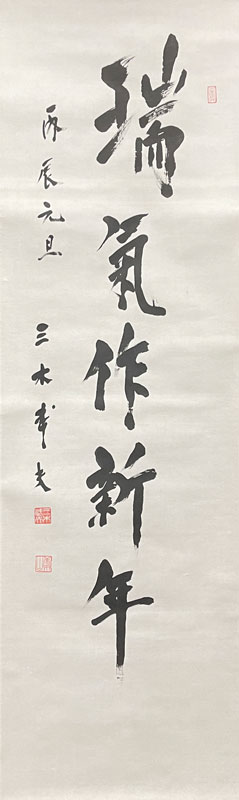 瑞氣作新年
丙辰元旦
三木武夫